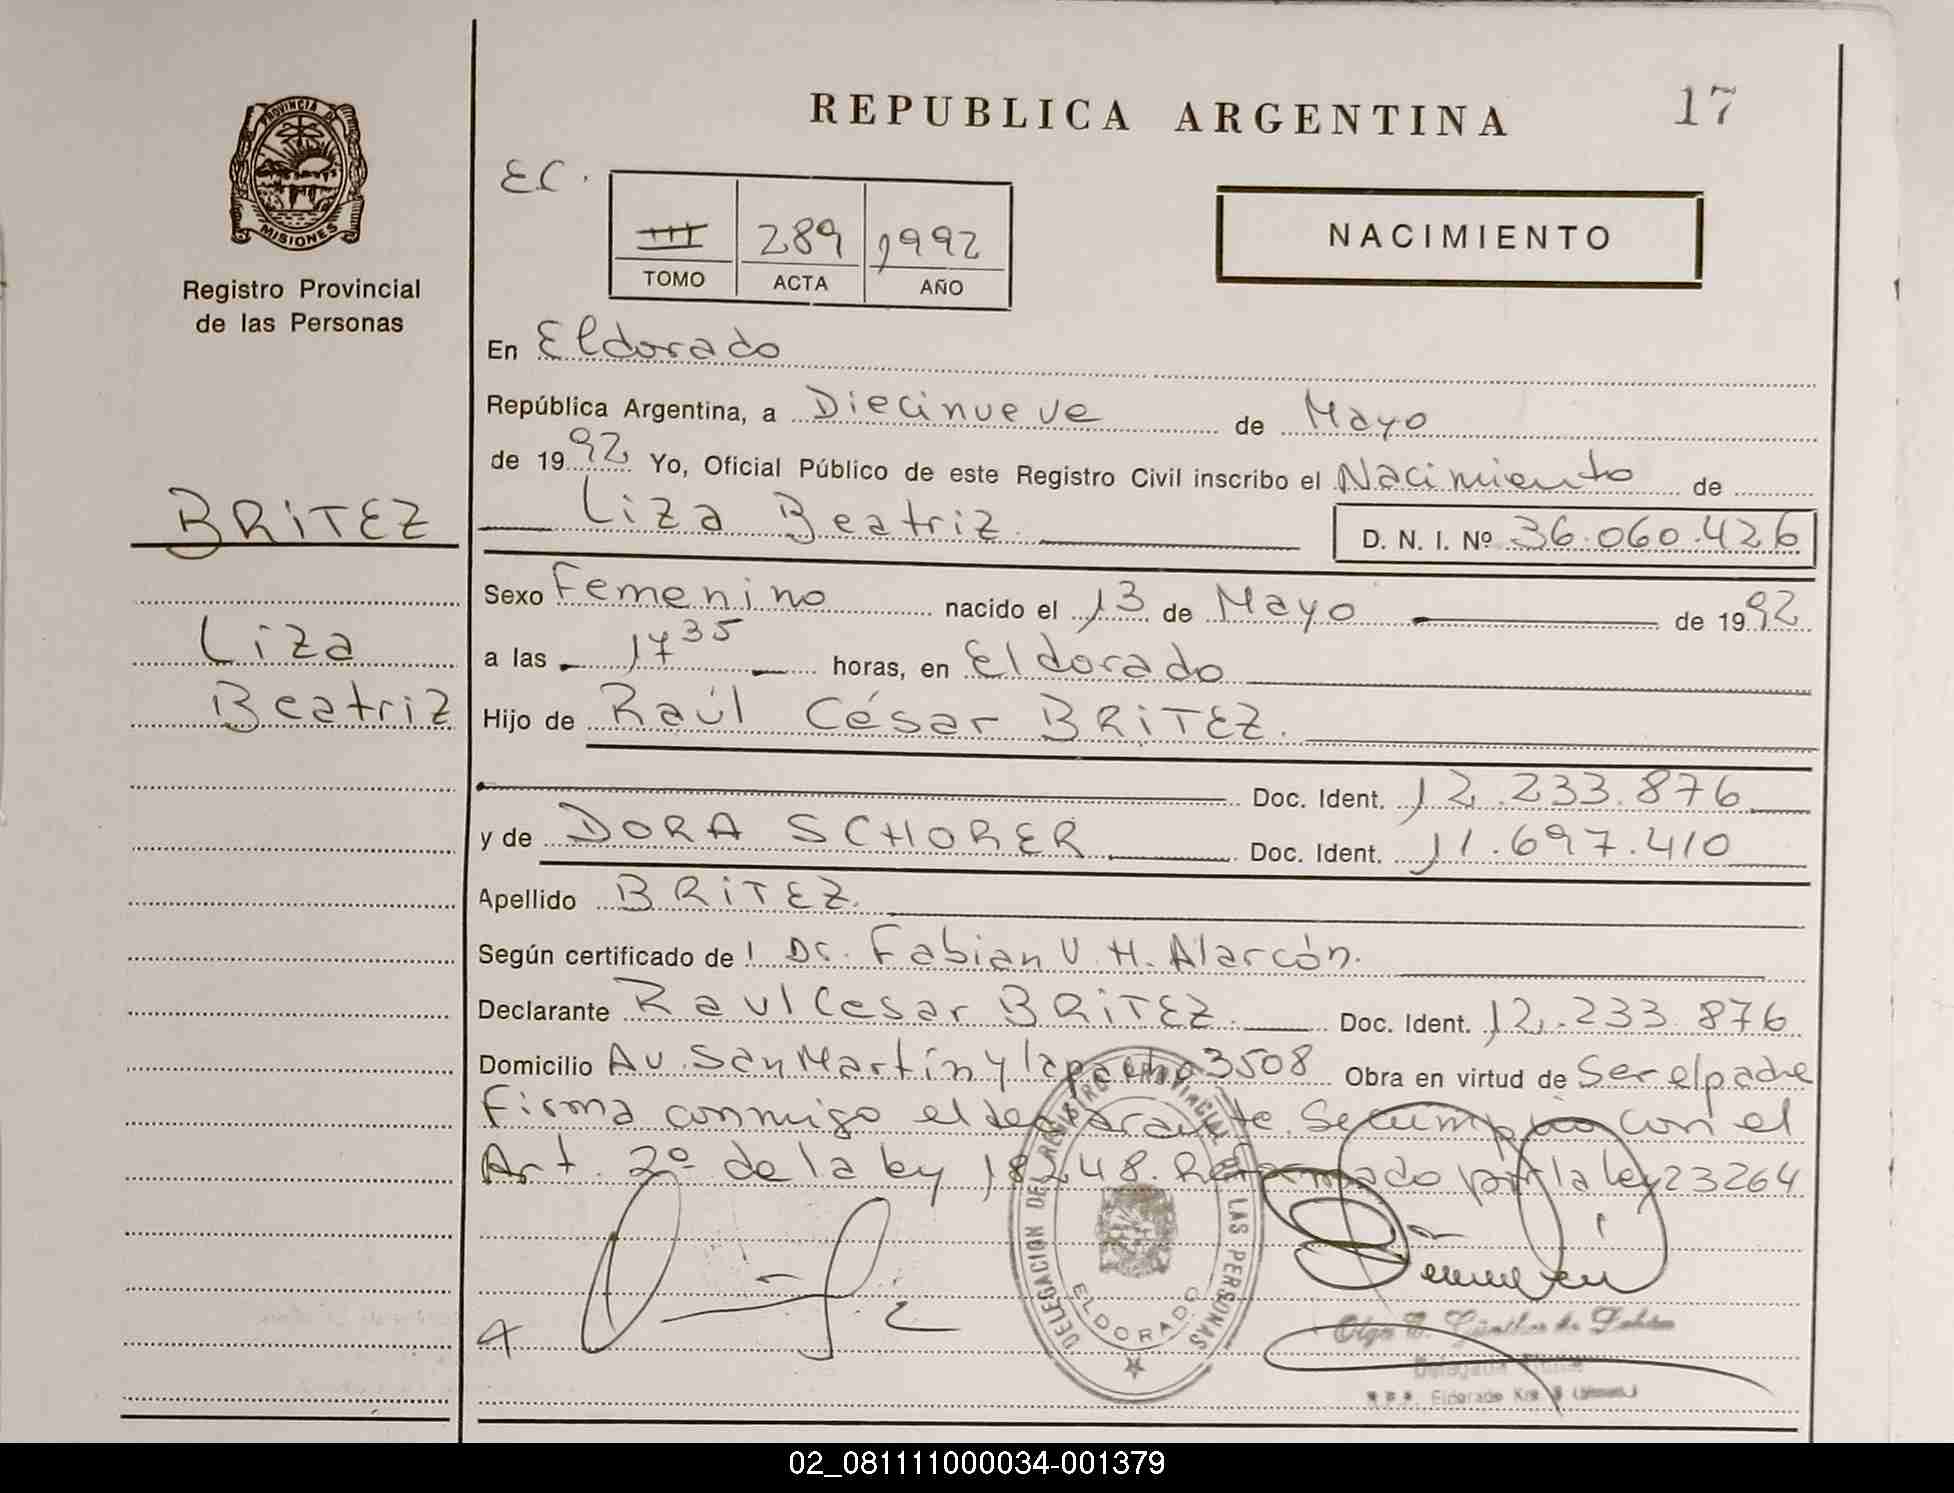 REPUBLICA ARGENTINA
17
PROVINCIA DE
MISIONES
Registro Provincial
de las Personas
EC.
III 289 1992
TOMO ACTA AÑO
NACIMIENTO
En Eldorado
República Argentina, a Diecinueve de Mayo
de 1992 Yo, Oficial Público de este Registro Civil inscribo el Nacimiento de
Liza Beatriz D. N. I. Nº 36.060.426
BRITEZ
Liza
Beatriz
Sexo Femenino nacido el 13 de Mayo de 1992
a las 17 35 horas, en Eldorado
Hijo de Raúl César BRITEZ.
Doc. Ident. 12.233.876
y de DORA SCHORER Doc. Ident. 11.697.410
Apellido BRITEZ.
Según certificado de l Dr. Fabian V. H. Alarcón.
Declarante Raul Cesar BRITEZ. Doc. Ident. 12.233.876
Domicilio Av. San Martín y lapacho 3508 Obra en virtud de Ser el padre
Firma conmigo el declarante. Se cumplio con el
Art. 2º de la ley 18248. Reformado por la ley 23264
DELEGACION DEL REGISTRO PROVINCIAL DE LAS PERSONAS
ELDORADO
Olga
Delegada
Eldorado
02_081111000034-001379